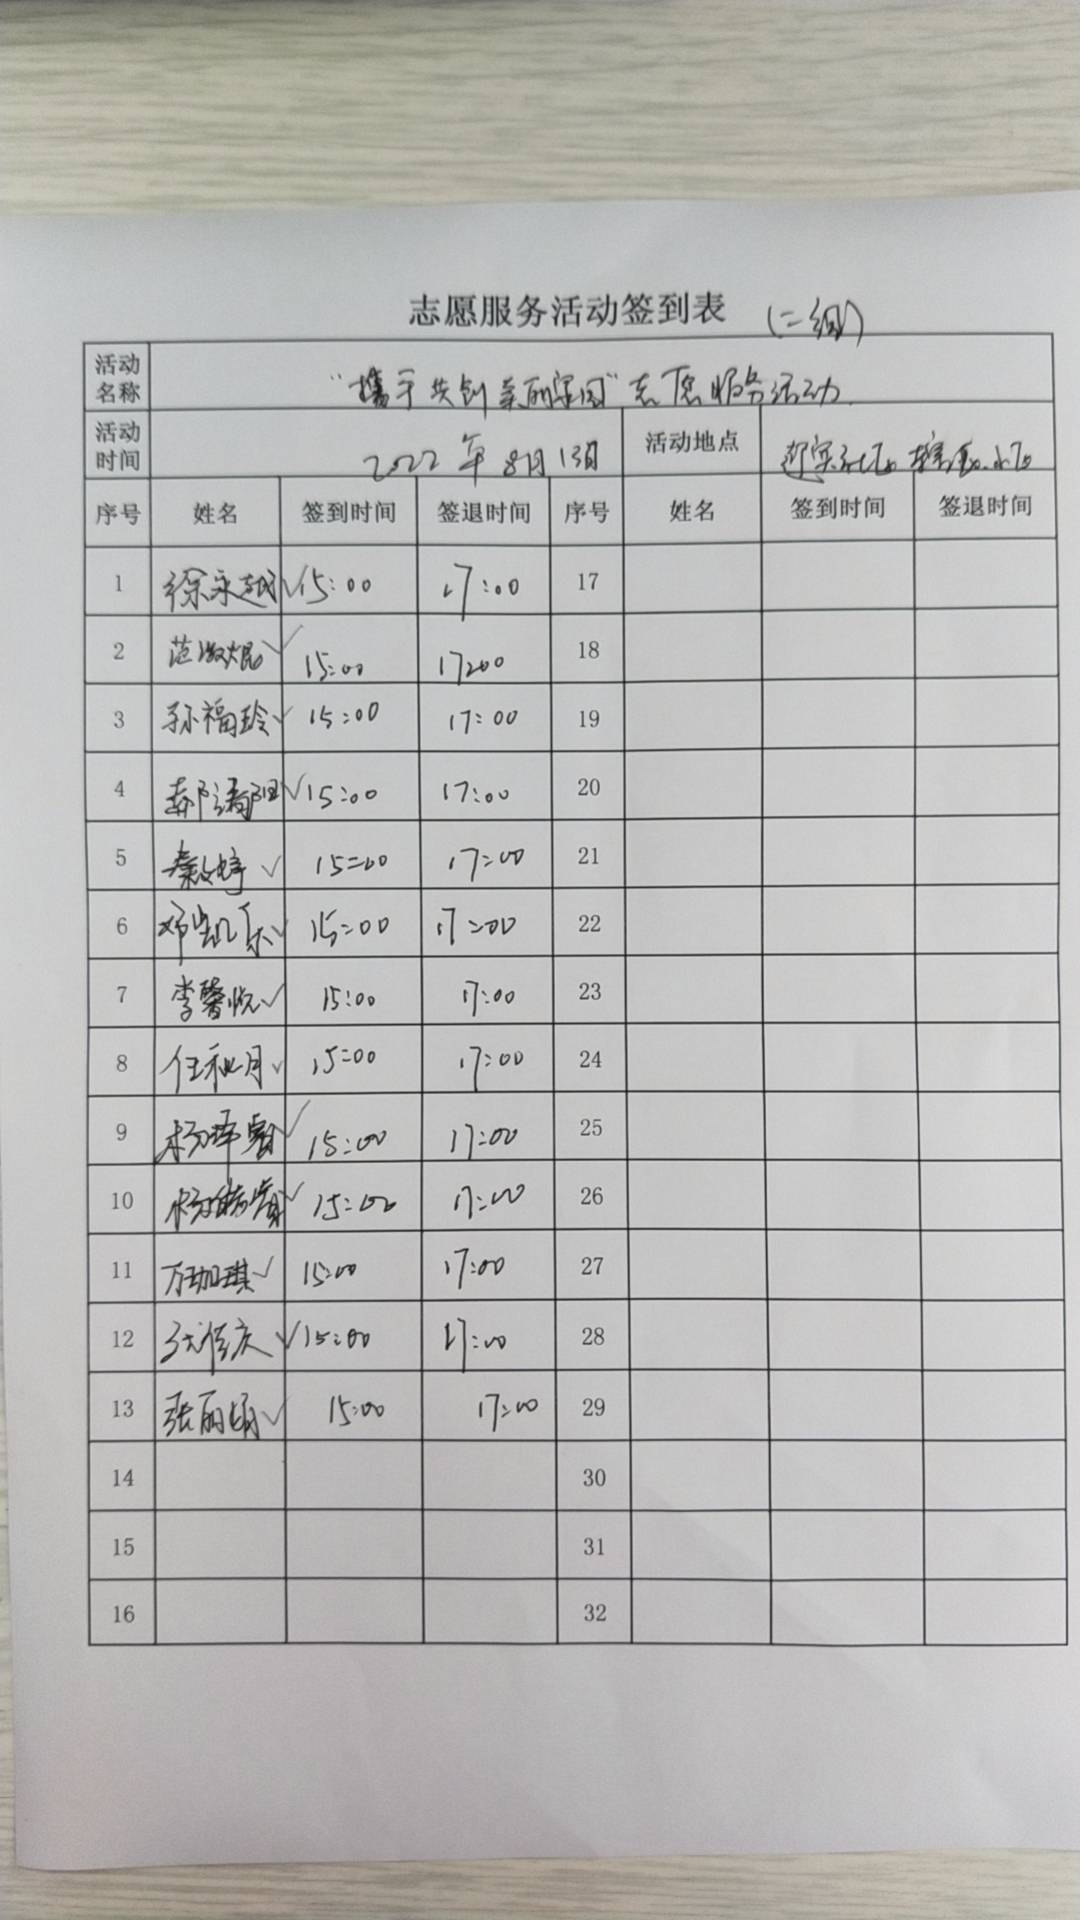 志愿服务活动签到表 (二组)
活动名称 "携手共创美丽家园"志愿服务活动
活动时间 2022年8月13日 活动地点 迎宾社区 小区
序号 姓名 签到时间 签退时间 序号 姓名 签到时间 签退时间
1 徐永越 ✓ 15:00 17:00 17
2 范 ✓ 15:00 17:00 18
3 孙福玲 ✓ 15:00 17:00 19
4 ✓ 15:00 17:00 20
5 秦 婷 ✓ 15:00 17:00 21
6 邓凯乐 ✓ 15:00 17:00 22
7 李馨悦 ✓ 15:00 17:00 23
8 任秋月 ✓ 15:00 17:00 24
9 杨 ✓ 15:00 17:00 25
10 杨 ✓ 15:00 17:00 26
11 万珈琪 ✓ 15:00 17:00 27
12 张 庆 ✓ 15:00 17:00 28
13 张丽娟 ✓ 15:00 17:00 29
14 30
15 31
16 32